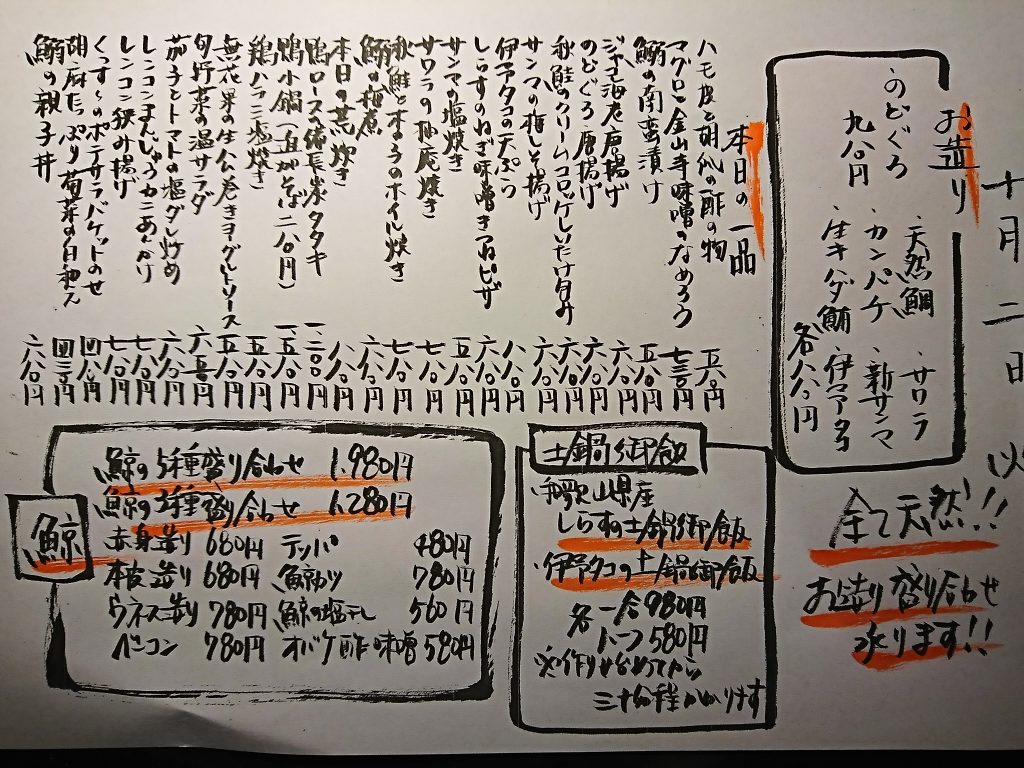 十月二日 火
お造り
のどぐろ 九八〇円
・天然鯛 ・サワラ
・カンパチ ・新サンマ
・生キハダ鮪 ・伊マアタコ
各八八〇円
全て天然!!
お造り盛り合わせ
承ります!!
本日の一品
ハモ皮と胡瓜の酢の物 五八〇円
マグロと金山寺味噌のなめろう 七三〇円
鰯の南蛮漬け 五八〇円
ジャコ海老唐揚げ 六八〇円
のどぐろ唐揚げ 六八〇円
秋鮭のクリームコロッケしいたけ包み 六八〇円
サンマの梅しそ揚げ 六八〇円
伊マアタコの天ぷら 八八〇円
しらすのねぎ味噌きつねピザ 六八〇円
サンマの塩焼き 五八〇円
サワラの柚庵焼き 七八〇円
秋鮭ときのこのホイル焼き 七八〇円
鰯の梅煮 六八〇円
本日の荒炊き 八八〇円
鴨ロースの備長炭タタキ 一二〇〇円
鴨小鍋(追がそば二八〇円) 一五八〇円
鶏ハラミ塩焼き 五八〇円
無花果の生ハム巻きヨーグルトソース 五八〇円
旬野菜の温サラダ 六三〇円
茄子とトマトの塩ダレ炒め 六八〇円
レンコンまんじゅうカニあんかけ 七八〇円
レンコン挟み揚げ 七八〇円
くんすーのポテサラバケットのせ 四八〇円
胡麻たっぷり菊芽の白和え 四三〇円
鰯の親子丼 六八〇円
土鍋御飯
和歌山県産
しらすの土鍋御飯
伊マアタコの土鍋御飯
各一合 980円
ハーフ 580円
※作り始めてから
三十分程かかります
鯨
鯨の5種盛り合わせ 1.980円
鯨の3種盛り合わせ 1.280円
赤身造り 680円 テッパ 480円
本皮造り 680円 鯨カツ 780円
ウネス造り 780円 鯨の塩干し 560円
ベーコン 780円 オバケ酢味噌 580円